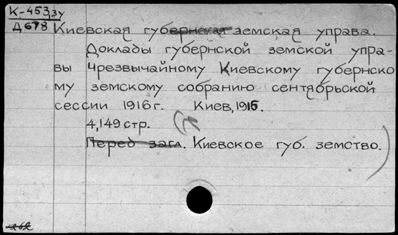 К-453,зу
Д678
Киевская губернская земская управа.
Доклады губернской земской упра-
вы Чрезвычайному Киевскому губернско
му земскому собранию сентябрьской
сессии 1916 г. Киев, 1916.
4,149 стр.
Перед загл. Киевское губ. земство.